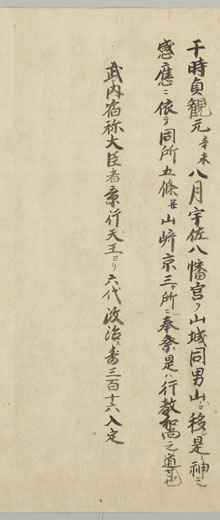 千時貞観元辛未八月宇佐八幡宮ヲ山城同男山ニ移ス是神之
感應ニ依テ同所五條並山崎京三ケ所ニ奉祭是ハ行教和尚之道也
武内宿祢大臣者景行天王ヨリ六代政治壽三百十六入定